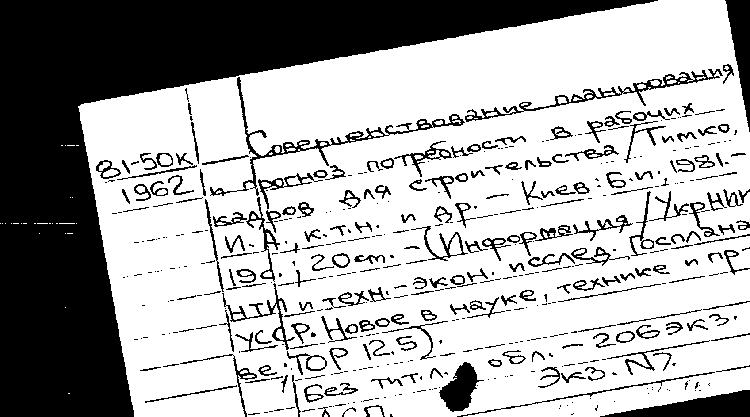 Совершенствование планирования
81-50к
1962
и прогноз потребности в рабочих
кадров для строительства / Тимко,
И. А., к.т.н. и др. - Киев: Б.и., 1981.-
19с.; 20см. - (Информация / УкрНИИ
НТИ и техн.-экон. исслед. Госплана
УССР. Новое в науке, технике и пр-
ве; ТОР 12.5).
Без тит.л. обл. - 206 экз.
Экз. N7.
ДСП.